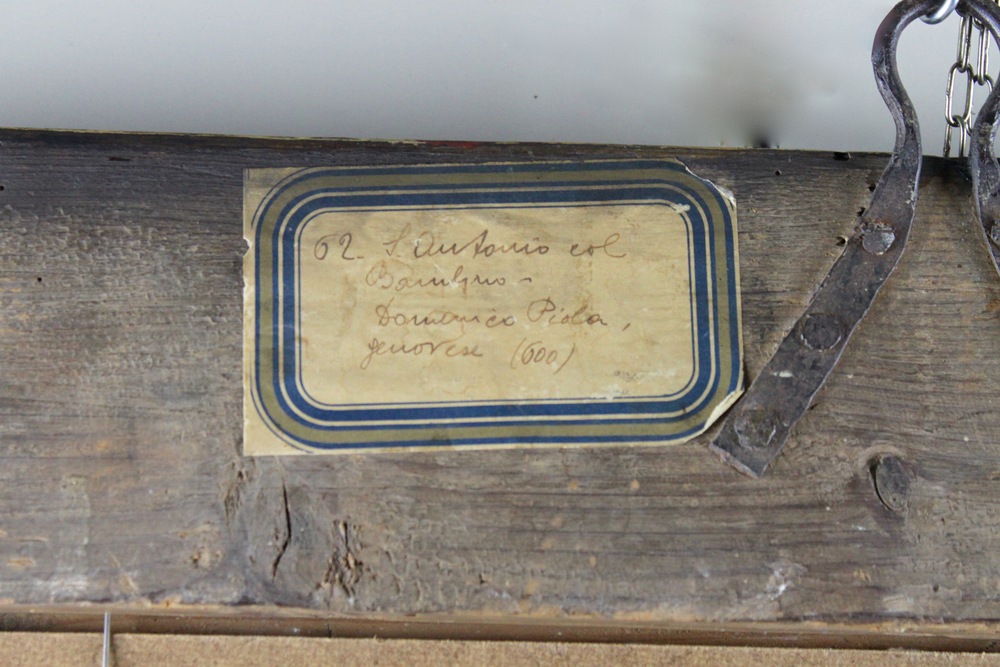 62. S. Antonio col
Bambino -
Domenico Piola,
genovese (600)